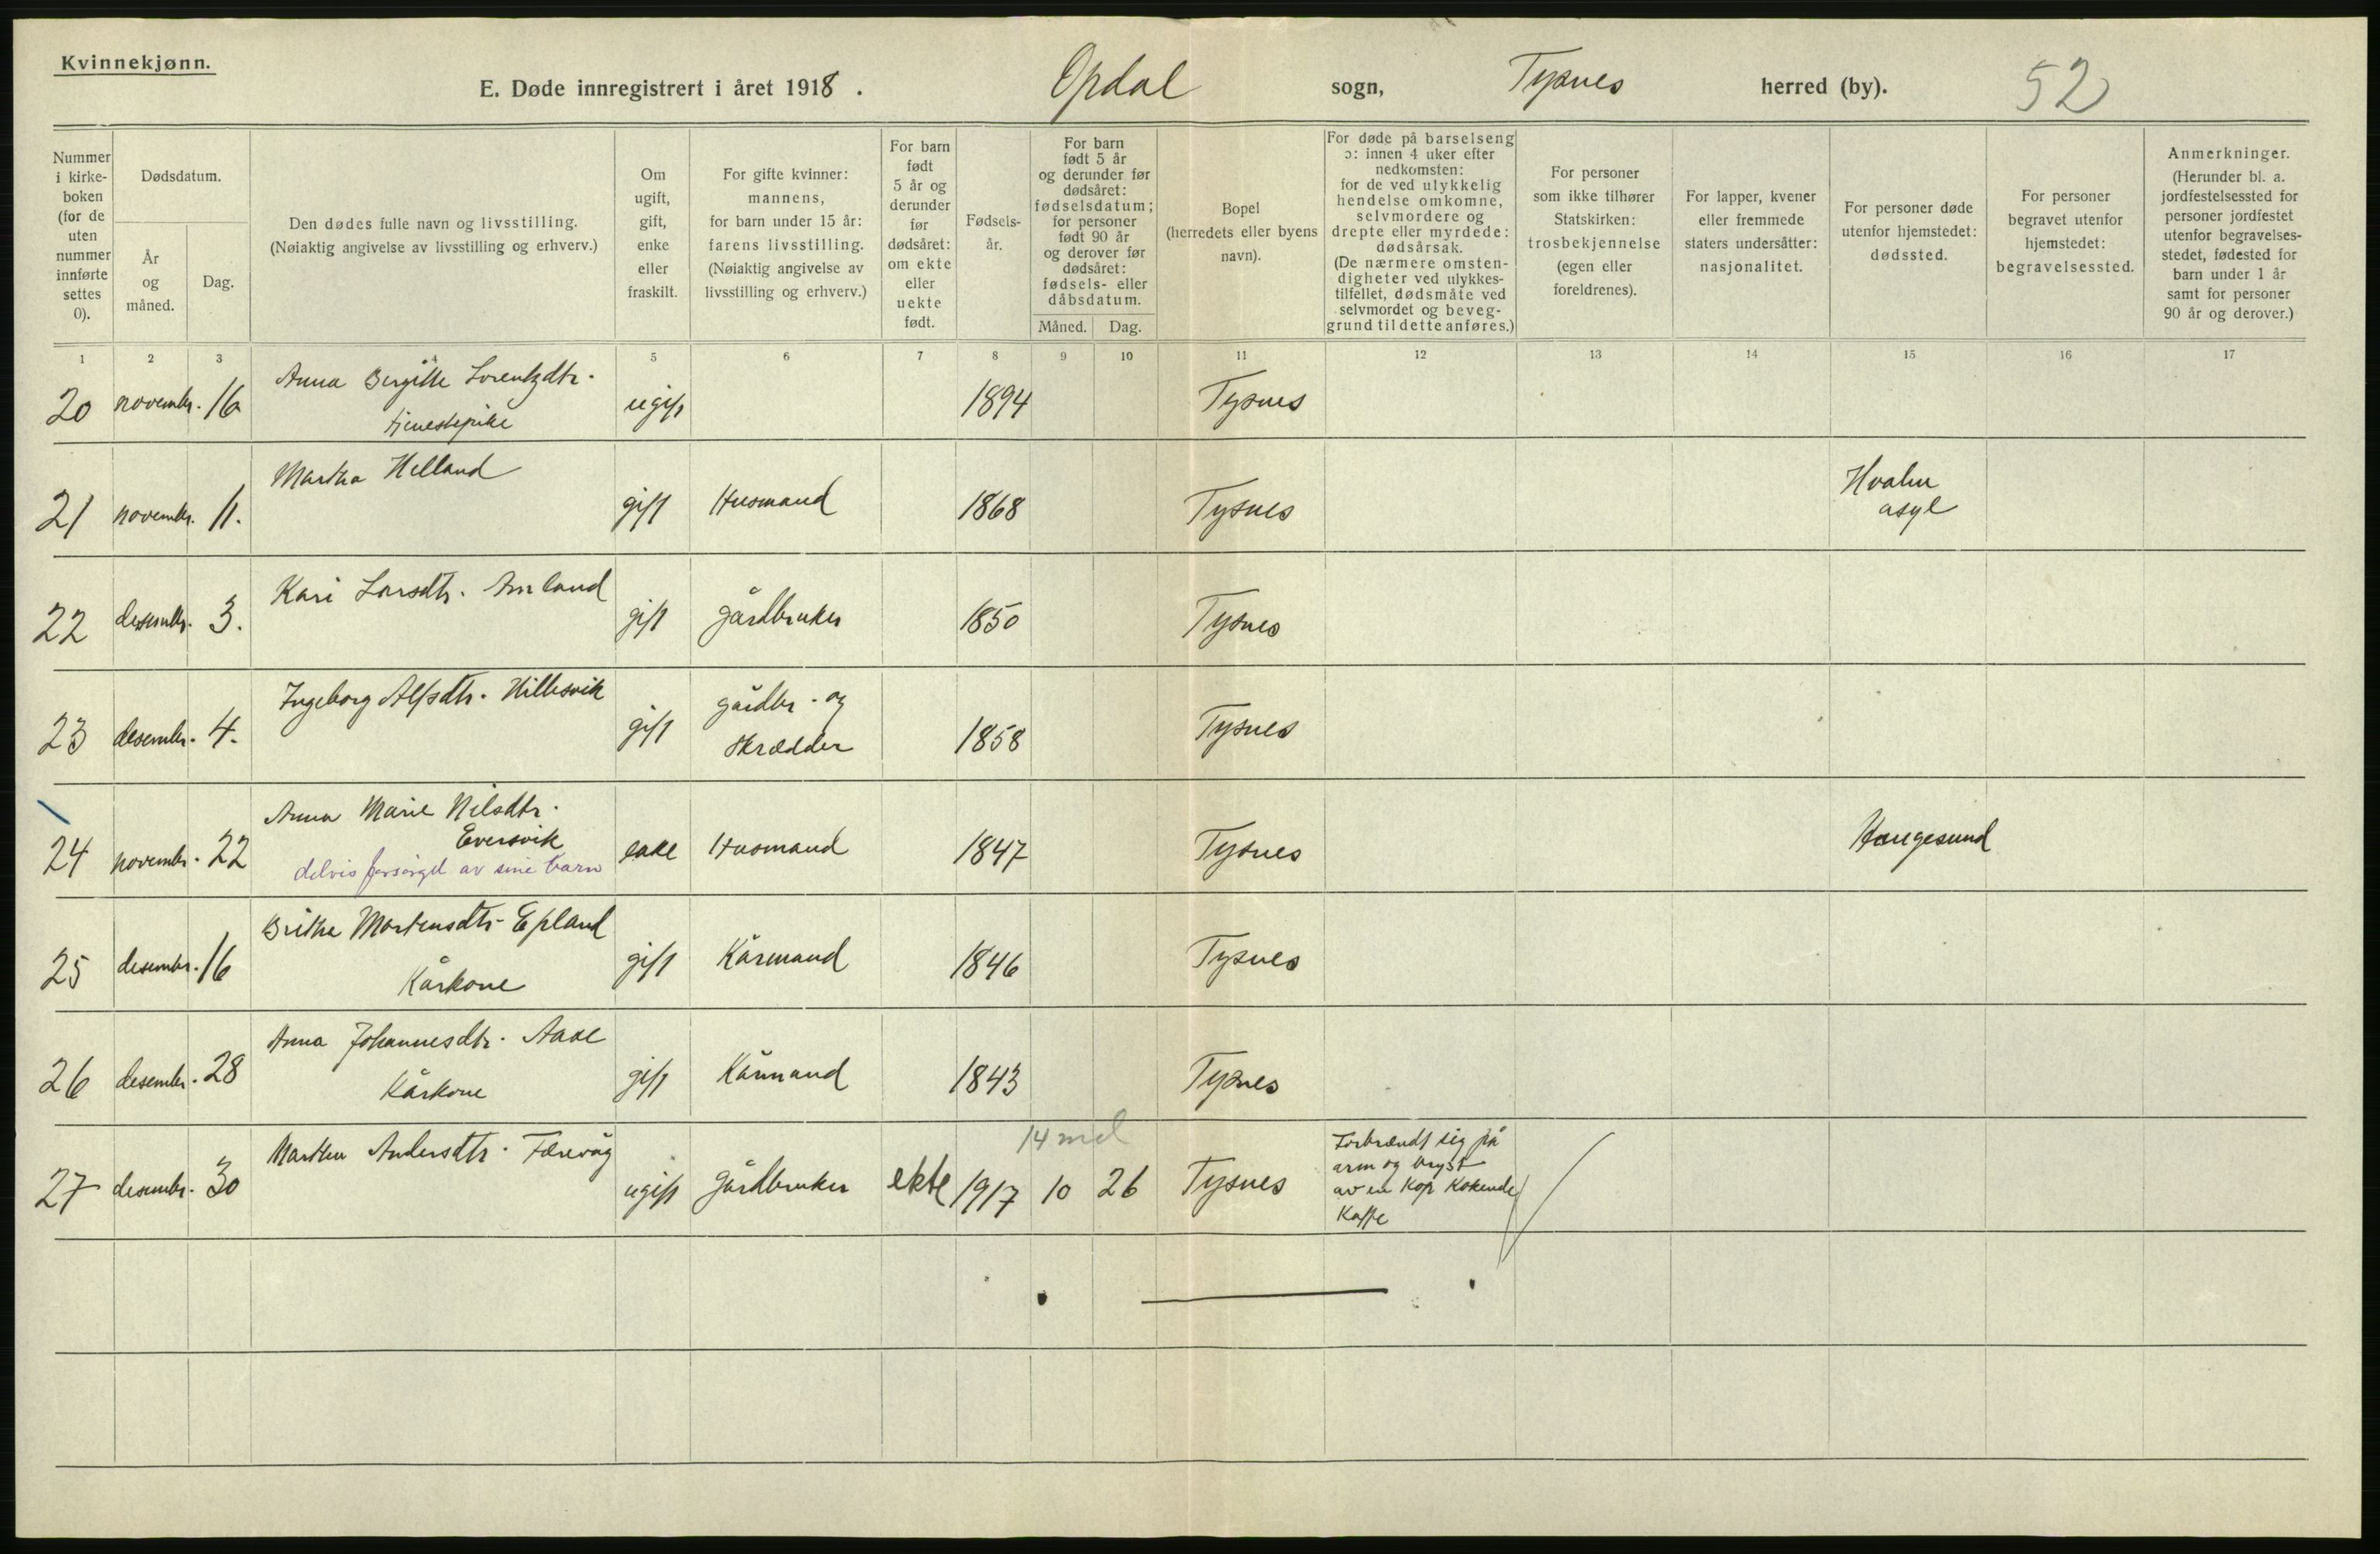 Kvinnekjønn.
E. Døde innregistrert i året 1918. Opdal sogn, Tysnes herred (by). 52
Nummer i kirke-boken (for de uten nummer innførte settes 0).
Dødsdatum.
År og måned.
Dag.
Den dødes fulle navn og livsstilling.
(Nøiaktig angivelse av livsstilling og erhverv.)
Om ugift, gift, enke eller fraskilt.
For gifte kvinner: mannens, for barn under 15 år: farens livsstilling. (Nøiaktig angivelse av livsstilling og erhverv.)
For barn født 5 år og derunder før dødsåret: om ekte eller uekte født.
Fødsels-år.
For barn født 5 år og derunder før dødsåret: fødselsdatum; for personer født 90 år og derover før dødsåret: fødsels- eller dåbsdatum.
Måned. Dag.
Bopel (herredets eller byens navn).
For døde på barselseng ɔ: innen 4 uker efter nedkomsten: for de ved ulykkelig hendelse omkomne, selvmordere og drepte eller myrdede: dødsårsak. (De nærmere omsten-digheter ved ulykkes-tilfellet, dødsmåte ved selvmordet og beveg-grund til dette anføres.)
For personer som ikke tilhører Statskirken: trosbekjennelse (egen eller foreldrenes).
For lapper, kvener eller fremmede staters undersåtter: nasjonalitet.
For personer døde utenfor hjemstedet: dødssted.
For personer begravet utenfor hjemstedet: begravelsessted.
Anmerkninger. (Herunder bl. a. jordfestelsessted for personer jordfestet utenfor begravelses-stedet, fødested for barn under 1 år samt for personer 90 år og derover.)
1 2 3 4 5 6 7 8 9 10 11 12 13 14 15 16 17
20 novembr. 16 Anna Birgitte Lorentzdtr. ugift 1894 Tysnes
tjenestepike
21 novembr. 11. Martha Helland gift Husmand 1868 Tysnes
asyl
22 desembr. 3. Kari Larsdtr. gift gårdbruker 1850 Tysnes
23 desembr. 4. Ingeborg Alfsdtr. Hillesvik gift gårdbr. og 1858 Tysnes
skrædder
24 novembr. 22 Anna Marie Nilsdtr. enke Husmand 1847 Tysnes Haugesund
Eversvik
delvis forsørget av sine barn
25 desembr. 16 Britha Mortensdtr. Epland gift Kårmand 1846 Tysnes
Kårkone
26 desembr. 28 Anna Johannesdtr. gift Kårmand 1843 Tysnes
Kårkone
14 md
27 desembr. 30 Martha Andersdtr. Færevåg ugift gårdbruker ekte 1917 10 26 Tysnes Forbrændt sig på
arm og bryst
av en Kop Kokende
Kaffe